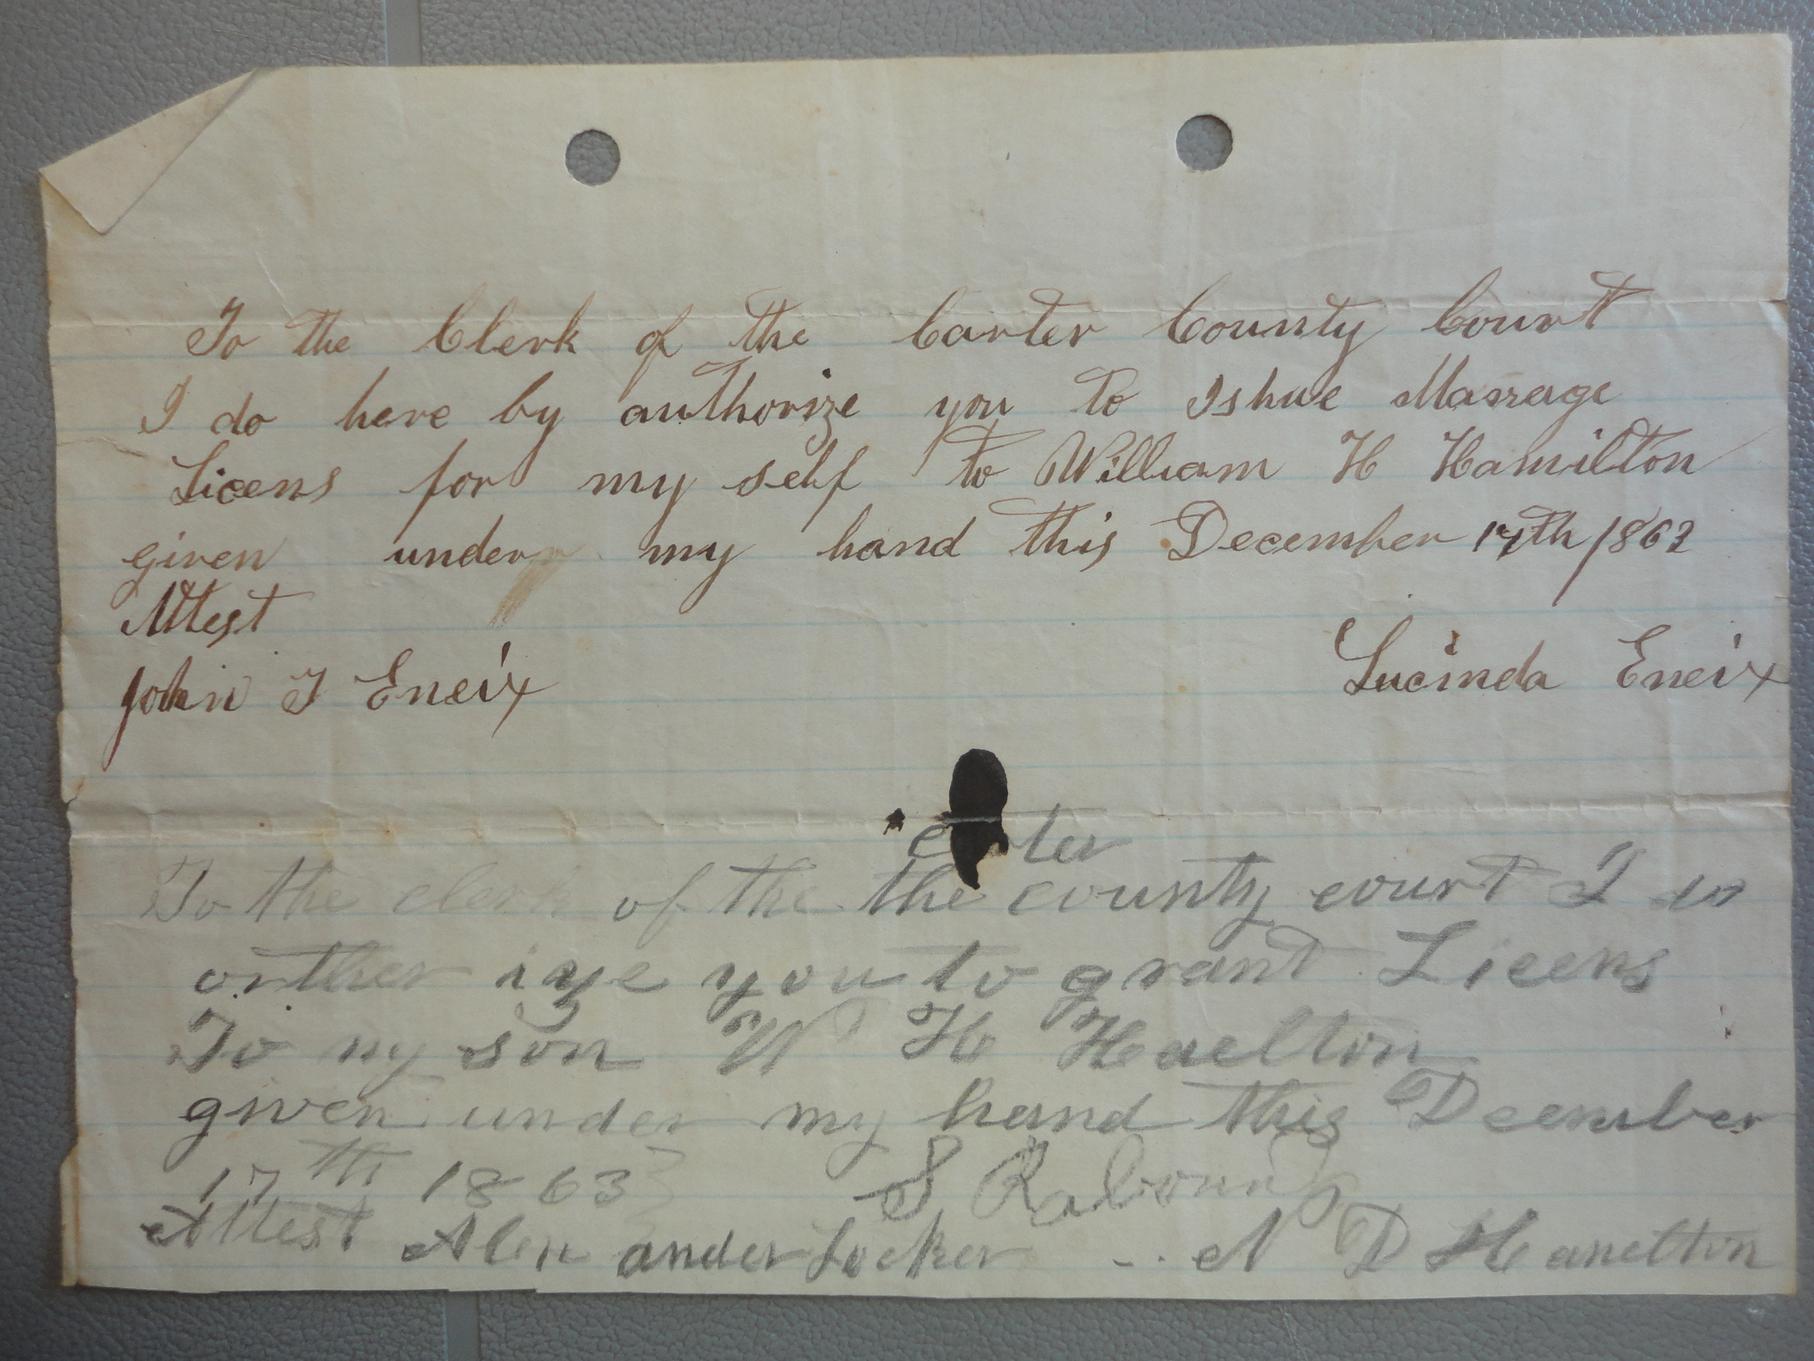 To the Clerk of the Carter County Court
I do here by authorize you to Ishue Marrage
Licens for my self to William H Hamilton
given under my hand this December 17th 1863
Attest
John T Eneix
Lucinda Eneix
To the clerk of the the county court I do
orther iye you to grant Licens
To my son W H Haelton
given under my hand this December
17th 1863 S
Attest Alen ander N D Hamelton